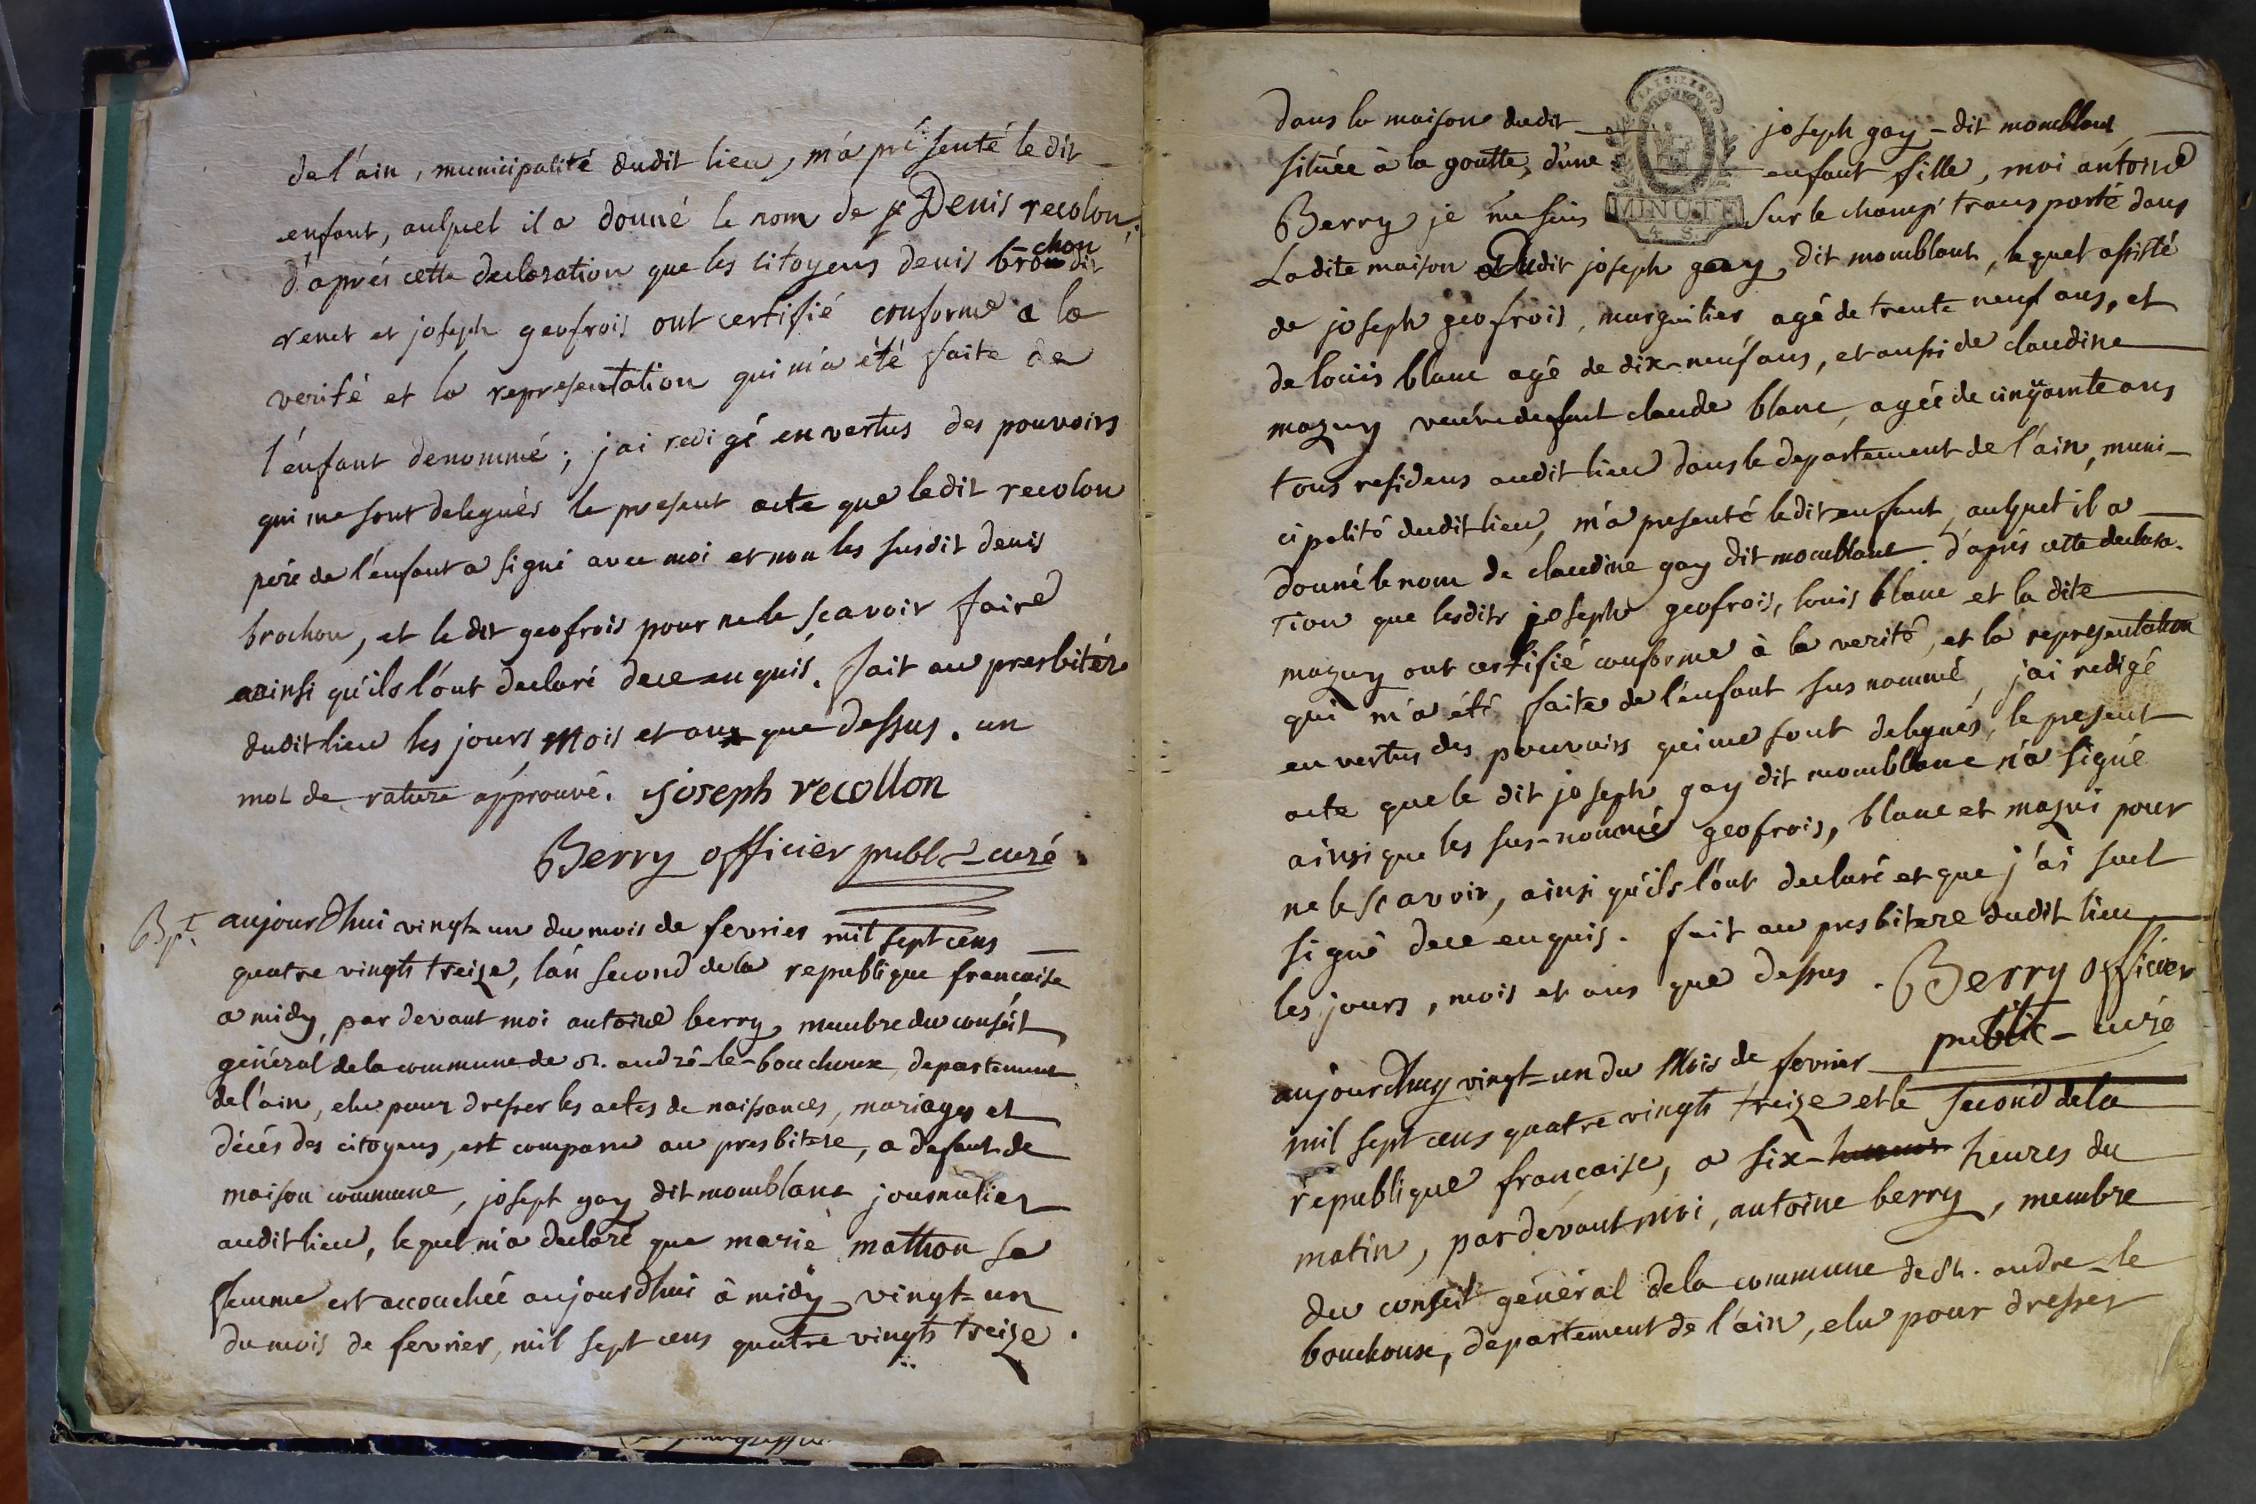 de l'ain, municipalité dudit lieu, m'a présenté le dit
enfant, auquel il a donné le nom de Denis recolon,
d'après cette declaration que les citoyens denis brochon dit
venet et joseph geofrois ont certifié conforme a la
verité et la representation qui m'a été faite de
l'enfant denommé; j'ai redigé en vertus des pouvoirs
qui me sont delegués le present acte que ledit recolon
père de l'enfant a signé avec moi et non les susdit denis
brochon, et le dit geofrois pour ne le scavoir faire
ainsi qu'ils l'ont declaré de ce enquis. fait au presbitère
dudit lieu les jours, mois et an que dessus. un
mot de rature approuvé. joseph recollon
Berry officier public-curé.
Bpt. aujourdhui vingt-un du mois de fevrier mil sept cens
quatre vingts treize, l'an second de la republique francaise
a midy, par devant moi antoine berry, membre du conseil
général de la commune de st. andré-le-bouchoux, departement
de l'ain, elu pour dresser les actes de naissances, mariages et
décés des citoyens, est comparu au presbitere, a defaut de
maison commune, joseph gay dit momblant journalier
audit lieu, lequel m'a declaré que marie mathon sa
femme est accouchée aujourdhui à midy vingt-un
du mois de fevrier, mil sept cens quatre vingts treize.
dans la maison dudit joseph gay-dit momblant
située à la goutte, d'une enfant fille, moi antoine
Berry je me suis sur le champ transporté dans
MINUTE
4 S.
La dite maison dudit joseph gay, dit momblant, lequel assisté
de joseph geofrois, marguilier agé de trente neuf ans, et
de louis blanc agé de dix-neuf ans, et aussi de claudine
mazuy veuve defunt claude blanc, agée de cinquante ans
tous residens audit lieu dans le departement de l'ain, muni-
cipalité dudit lieu, m'a presenté ledit enfant, auquel il a
donné le nom de claudine gay dit momblant d'après cette declara-
tion que lesdits joseph geofrois, louis blanc et la dite
mazuy ont certifié conforme à la verité, et la representation
qui m'a été faite de l'enfant sus nommé, j'ai redigé
en vertus des pouvoirs qui me sont delegués, le present
acte que le dit joseph gay dit momblanc n'a signé
ainsi que les sus-nommés geofrois, blanc et mazui pour
ne le scavoir, ainsi qu'ils l'ont declaré et que j'ai seul
signé de ce enquis. fait au presbitere dudit lieu
les jours, mois et ans que dessus. Berry officier
public-curé
aujourdhuy vingt-un du mois de fevrier
mil sept cens quatre vingts treize et le second de la
republique française, a six heures du
matin, par devant moi, antoine berry, membre
du conseil général de la commune de st. andre-le
bouchoux, departement de l'ain, elu pour dresser